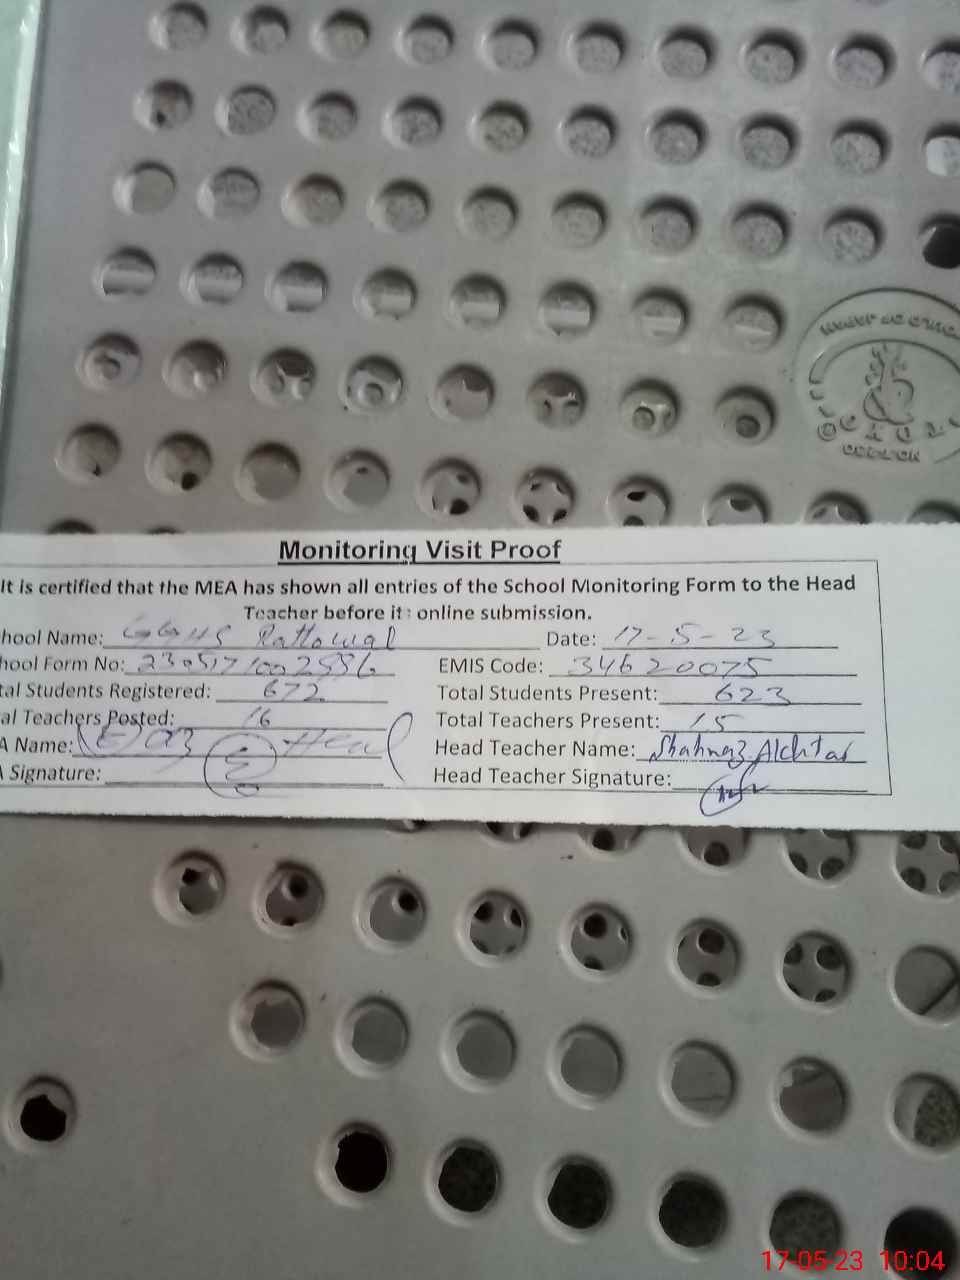 Monitoring Visit Proof
It is certified that the MEA has shown all entries of the School Monitoring Form to the Head
Teacher before it: online submission.
hool Name: GGHS Rattowal Date: 17-5-23
hool Form No: EMIS Code: 34620075
tal Students Registered: 672 Total Students Present: 623
al Teachers Posted: 16 Total Teachers Present: 15
A Name: Head Teacher Name: Shahnaz Akhtar
A Signature: Head Teacher Signature:
17-05-23 10:04